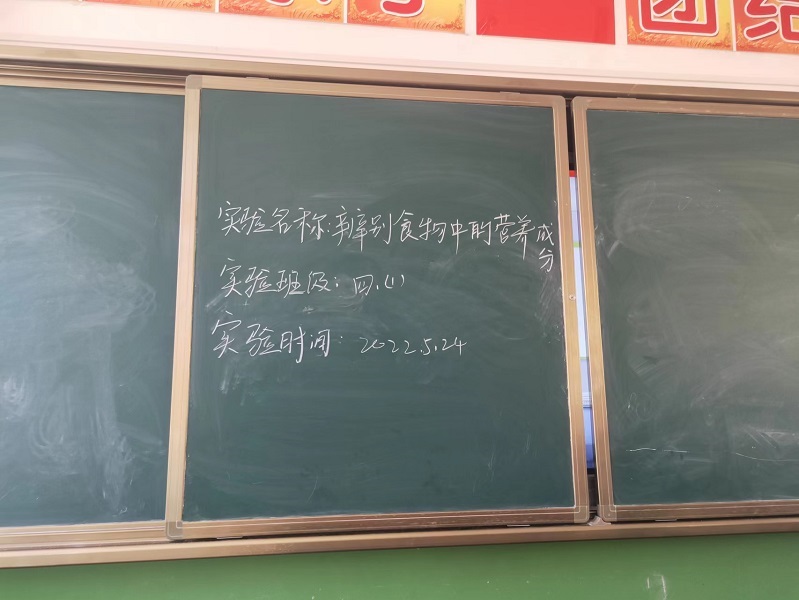 团结
实验名称:辨别食物中的营养成分
实验班级:四.(1)
实验时间:2022.5.24